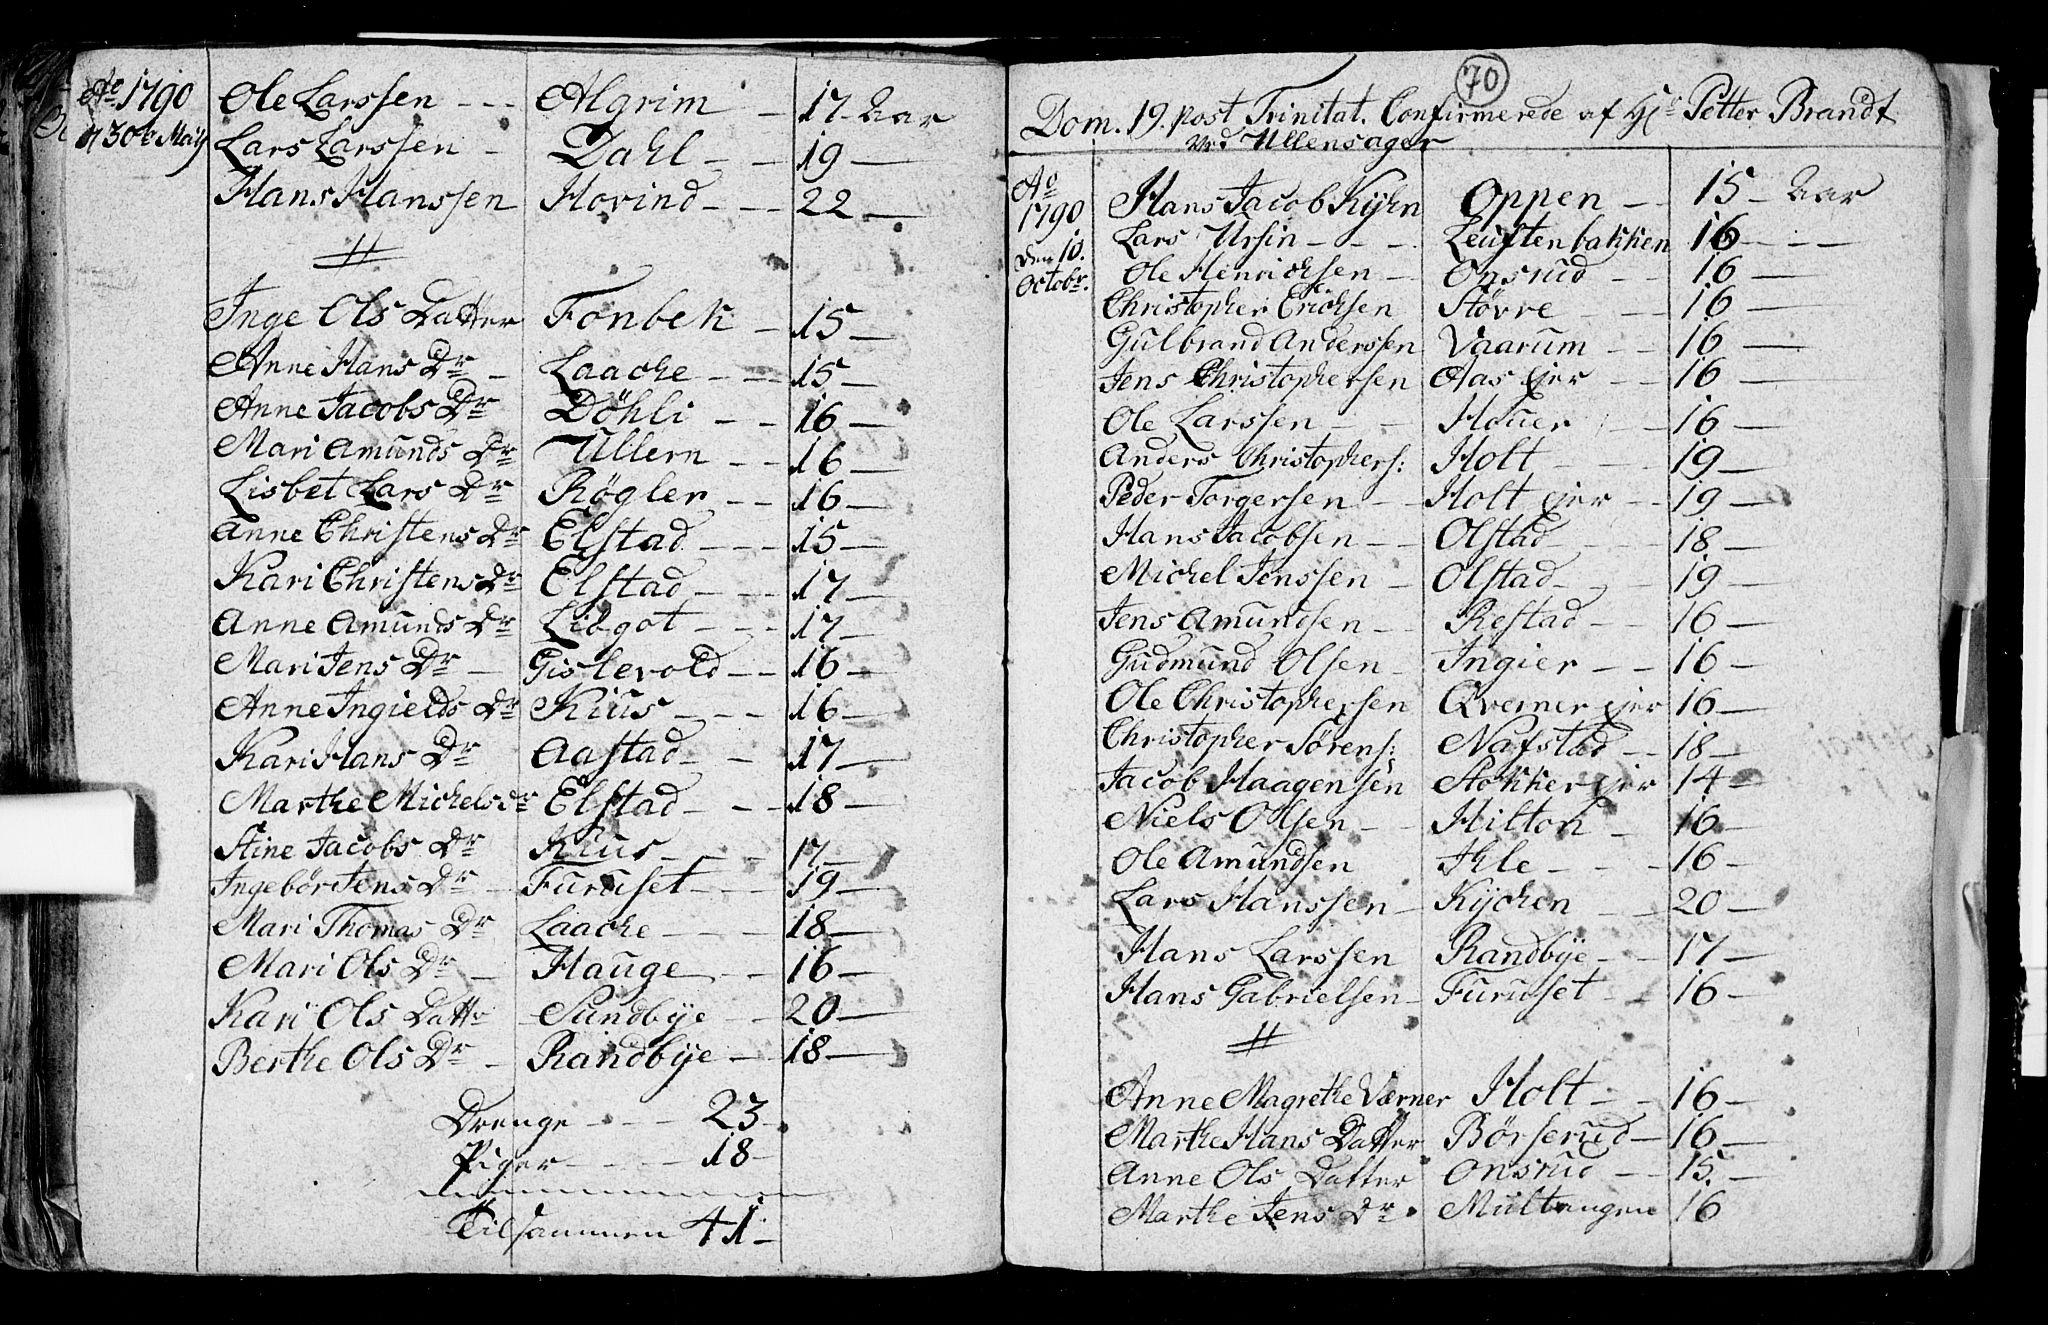 Ao 1790 Ole Larssen - - - Algrim 17 Aar
d 30te Maij Lars Larssen - Dahl - - 19 -
Hans Hanssen Hovind - - - 22 -
Inge Ols Datter Fonbek - 15 -
Anne Hans Dr - Laache - - - 15 -
Anne Jacobs Dr Döhli - - 16 -
Mari Amunds Dr Ullern - - 16 -
Lisbet Lars Dr Rögler - - 16 -
Anne Christens Dr Elstad - - - 15 -
Kari Christens Dr Elstad - - - 17 -
Anne Amunds Dr Libgot - - - 17 -
Mari Jens Dr - Gislevold - - 16 -
Anne Ingields Dr Kius - - - 16 -
Kari Hans Dr Aastad - - 17 -
Marthe Michels dr Elstad - - - 18 -
Stine Jacobs Dr Kius - - - 17 -
Ingebör Jens Dr - Furuset - - - 19 -
Mari Thomas Dr Laache - - - 18 -
Mari Ols Dr - Hauge - - 16 -
Kari Ols Dattr Sundbye - - 20 -
Berthe Ols Dr - Randbye - 18 -
Drenge - - - 23 -
Piger - - - 18 -
Tilsammen 41 -
70
Dom. 19. post Trinitat. Confirmerede af Hr Petter Brandt
ved Ullensager
Ao 1790 den 10. Octobr.
Hans Jacob Kyhn Oppen - - 15 - Aar
Lars Ursin - - - Leuftenbakken 16 - - -
Ole Henrichsen - Onsrud - - 16 -
Christopher Erichsen Støvre - - - 16 -
Gulbrand Anderssen Vaarum - - 16 -
Jens Christophersen Aas ejer - - 16 -
Ole Larssen - - Houer - 16 -
Anders Christophers: Holt - - - 19 -
Peder Torgersen - - Holt ejer - - 19 -
Hans Jacobsen - - Olstad - - - 18 -
Michel Jenssen - Olstad - - - 19 -
Jens Amundsen - - Restad - - 16 -
Gudmund Olsen - Ingier - - 16 -
Ole Christophersen Qverner ejer 16 -
Christopher Sörens: Nafstad - - 18 -
Jacob Haagensen Stokker ejer 14 -
Niels Olsen - - Hilton - 16 -
Ole Amundsen Ihle - - - 16 -
Lars Hanssen - Kychen - - 20 -
Hans Larssen Randbye - - 17 -
Hans Gabrielsen - Furuset - - 16 -
Anne Magrethe Værner Holt - - 16 -
Marthe Hans Datter Börserud - 16 -
Anne Ols Datter Onsrud - - 15. -
Marthe Jens Dr. Multangen 16